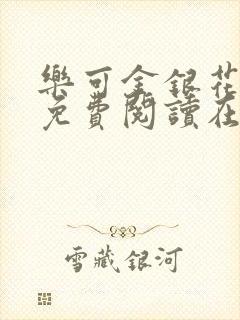 樂可金銀花
免費閱讀在
雪藏銀河